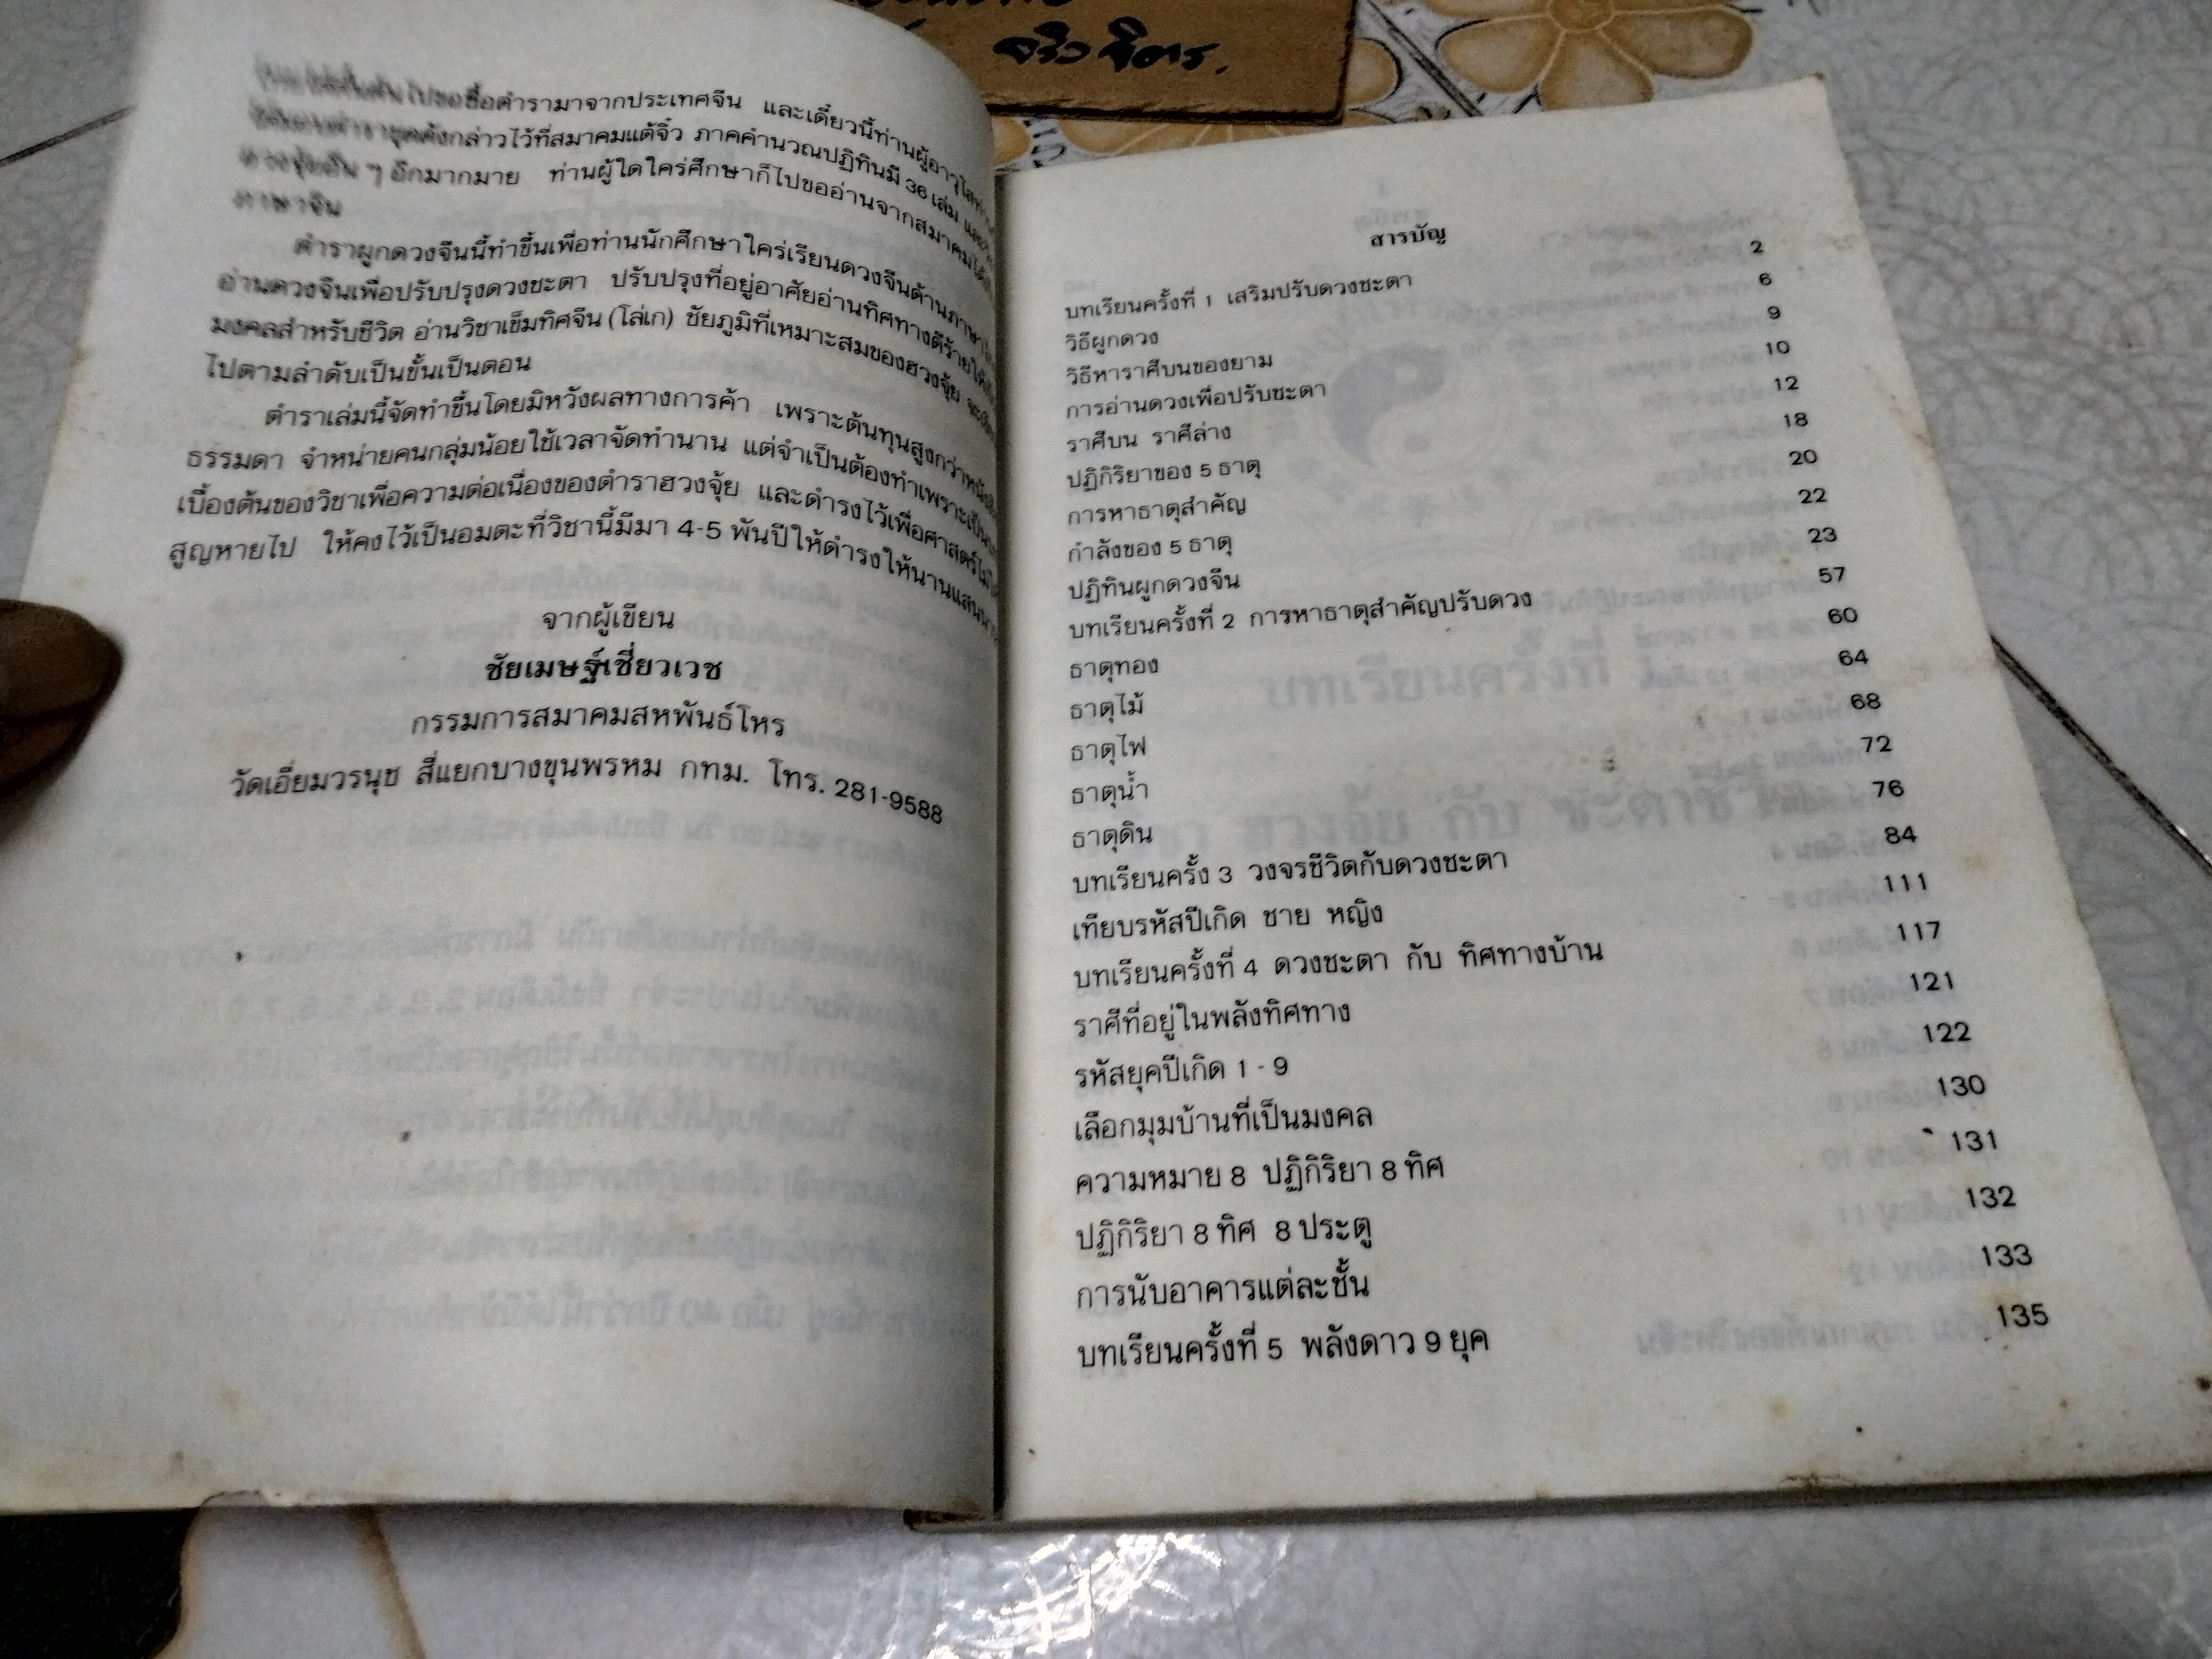 จิว จิตร.
ไปขอซื้อตำรามาจากประเทศจีน และเดี๋ยวนี้ท่านผู้อาวุโส
ดังกล่าวไว้ที่สมาคมแต้จิ๋ว ภาคคำนวณปฏิทินมี 36 เล่ม และ
ฮวงจุ้ยอื่น ๆ อีกมากมาย ท่านผู้ใดใคร่ศึกษาก็ไปขออ่านจากสมาคมได้
ภาษาจีน
ตำราผูกดวงจีนนี้ทำขึ้นเพื่อท่านนักศึกษาใคร่เรียนดวงจีนด้านภาษา
อ่านดวงจีนเพื่อปรับปรุงดวงชะตา ปรับปรุงที่อยู่อาศัยอ่านทิศทางดีร้าย
มงคลสำหรับชีวิต อ่านวิชาเข็มทิศจีน (โล่เก) ชัยภูมิที่เหมาะสมของฮวงจุ้ย
ไปตามลำดับเป็นขั้นเป็นตอน
ตำราเล่มนี้จัดทำขึ้นโดยมิหวังผลทางการค้า เพราะต้นทุนสูงกว่า
ธรรมดา จำหน่ายคนกลุ่มน้อยใช้เวลาจัดทำนาน แต่จำเป็นต้องทำเพราะเป็น
เบื้องต้นของวิชาเพื่อความต่อเนื่องของตำราฮวงจุ้ย และดำรงไว้เพื่อศาสตร์
สูญหายไป ให้คงไว้เป็นอมตะที่วิชานี้มีมา 4-5 พันปีให้ดำรงให้นานแสน
จากผู้เขียน
ชัยเมษฐ์เชี่ยวเวช
กรรมการสมาคมสหพันธ์โหร
วัดเอี่ยมวรนุช สี่แยกบางขุนพรหม กทม. โทร. 281-9588
สารบัญ
บทเรียนครั้งที่ 1 เสริมปรับดวงชะตา 2
วิธีผูกดวง 6
วิธีหาราศีบนของยาม 9
การอ่านดวงเพื่อปรับชะตา 10
ราศีบน ราศีล่าง 12
ปฏิกิริยาของ 5 ธาตุ 18
การหาธาตุสำคัญ 20
กำลังของ 5 ธาตุ 22
ปฏิทินผูกดวงจีน 23
บทเรียนครั้งที่ 2 การหาธาตุสำคัญปรับดวง 57
ธาตุทอง 60
ธาตุไม้ 64
ธาตุไฟ 68
ธาตุน้ำ 72
ธาตุดิน 76
บทเรียนครั้ง 3 วงจรชีวิตกับดวงชะตา 84
เทียบรหัสปีเกิด ชาย หญิง 111
บทเรียนครั้งที่ 4 ดวงชะตา กับ ทิศทางบ้าน 117
ราศีที่อยู่ในพลังทิศทาง 121
รหัสยุคปีเกิด 1 - 9 122
เลือกมุมบ้านที่เป็นมงคล 130
ความหมาย 8 ปฏิกิริยา 8 ทิศ 131
ปฏิกิริยา 8 ทิศ 8 ประตู 132
การนับอาคารแต่ละชั้น 133
บทเรียนครั้งที่ 5 พลังดาว 9 ยุค 135